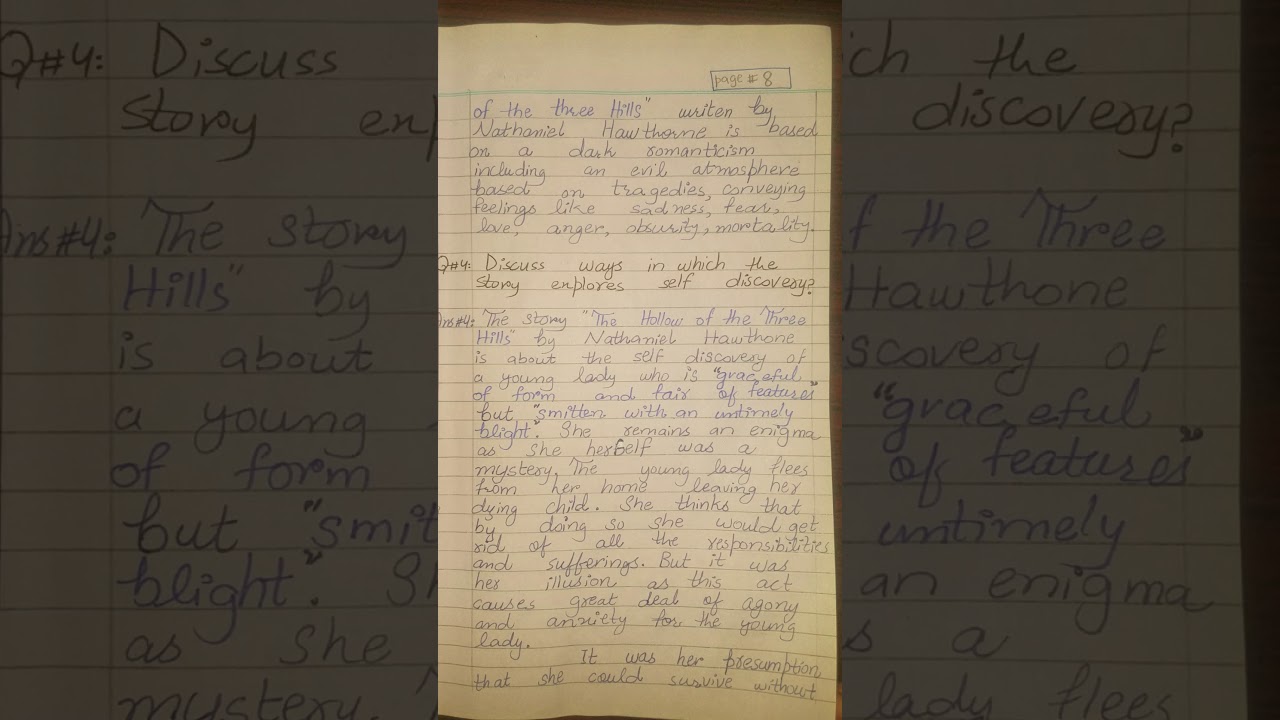 page # 8
of the three Hills" writen by
Nathaniel Hawthorne is based
on a dark romanticism
including an evil atmosphere
based on tragedies, conveying
feelings like sadness, fear,
love, anger, obsurity, mortality.
Q#4: Discuss ways in which the
story explores self discovery?
Ans#4: The story "The Hollow of the Three
Hills" by Nathaniel Hawthone
is about the self discovery of
a young lady who is "graceful
of form and fair of features"
but "smitten with an untimely
blight". She remains an enigma
as she herself was a
mystery. The young lady flees
from her home leaving her
dying child. She thinks that
by doing so she would get
rid of all the responsibilities
and sufferings. But it was
her illusion as this act
causes great deal of agony
and anxiety for the young
lady.
It was her presumption
that she could survive without